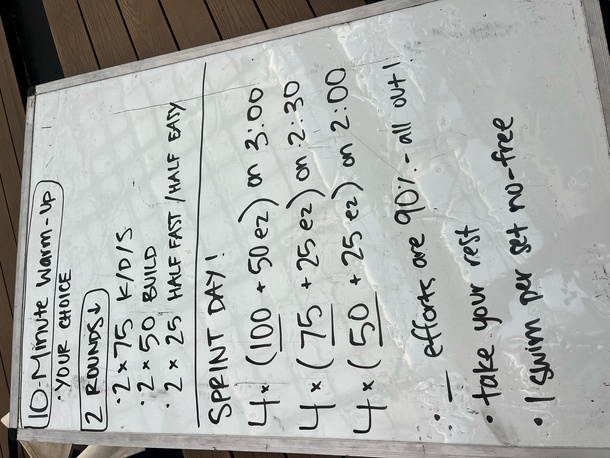 10-Minute Warm-up
• YOUR CHOICE
2 ROUNDS ↓
• 2 × 75 K/D/S
• 2 × 50 BUILD
• 2 × 25 HALF FAST / HALF EASY
SPRINT DAY!
4 × (100 + 50 ez) on 3:00
4 × (75 + 25 ez) on 2:30
4 × (50 + 25 ez) on 2:00
• __ efforts are 90% - all out!
• take your rest
• 1 swim per set no-free